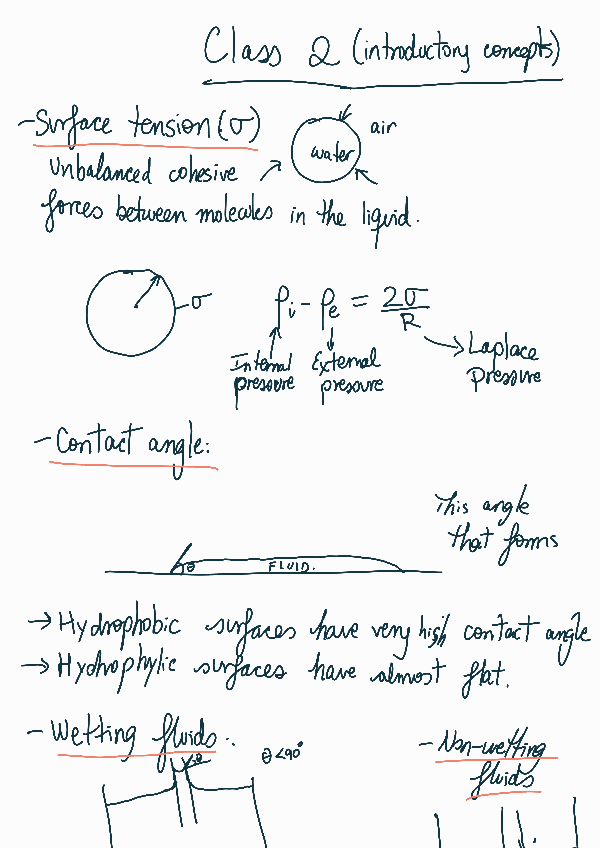 Class 2 (introductory concepts)
-Surface tension (σ)
air
water
Unbalanced cohesive
forces between molecules in the liquid.
σ
Pi - Pe = 2σ/R
Internal pressure
External pressure
Laplace Pressure
- Contact angle:
This angle
that forms
θ FLUID.
→ Hydrophobic surfaces have very high contact angle
→ Hydrophylic surfaces have almost flat.
- Wetting fluids:
θ
θ<90°
- Non-wetting
fluids